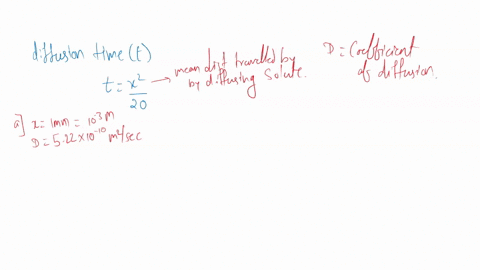 diffusion time (t)
t = x²/20
→ mean dist travelled by
by diffusing solute.
D = Coefficient
of diffusion.
a] x = 1mm = 10³ M
D = 5.22 × 10⁻¹⁰ m²/sec